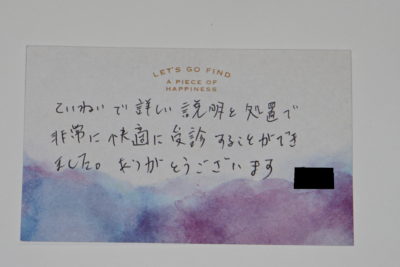 LET'S GO FIND
A PIECE OF
HAPPINESS
ていねいで詳しい説明と処置で
非常に快適に受診することができ
ました。ありがとうございます